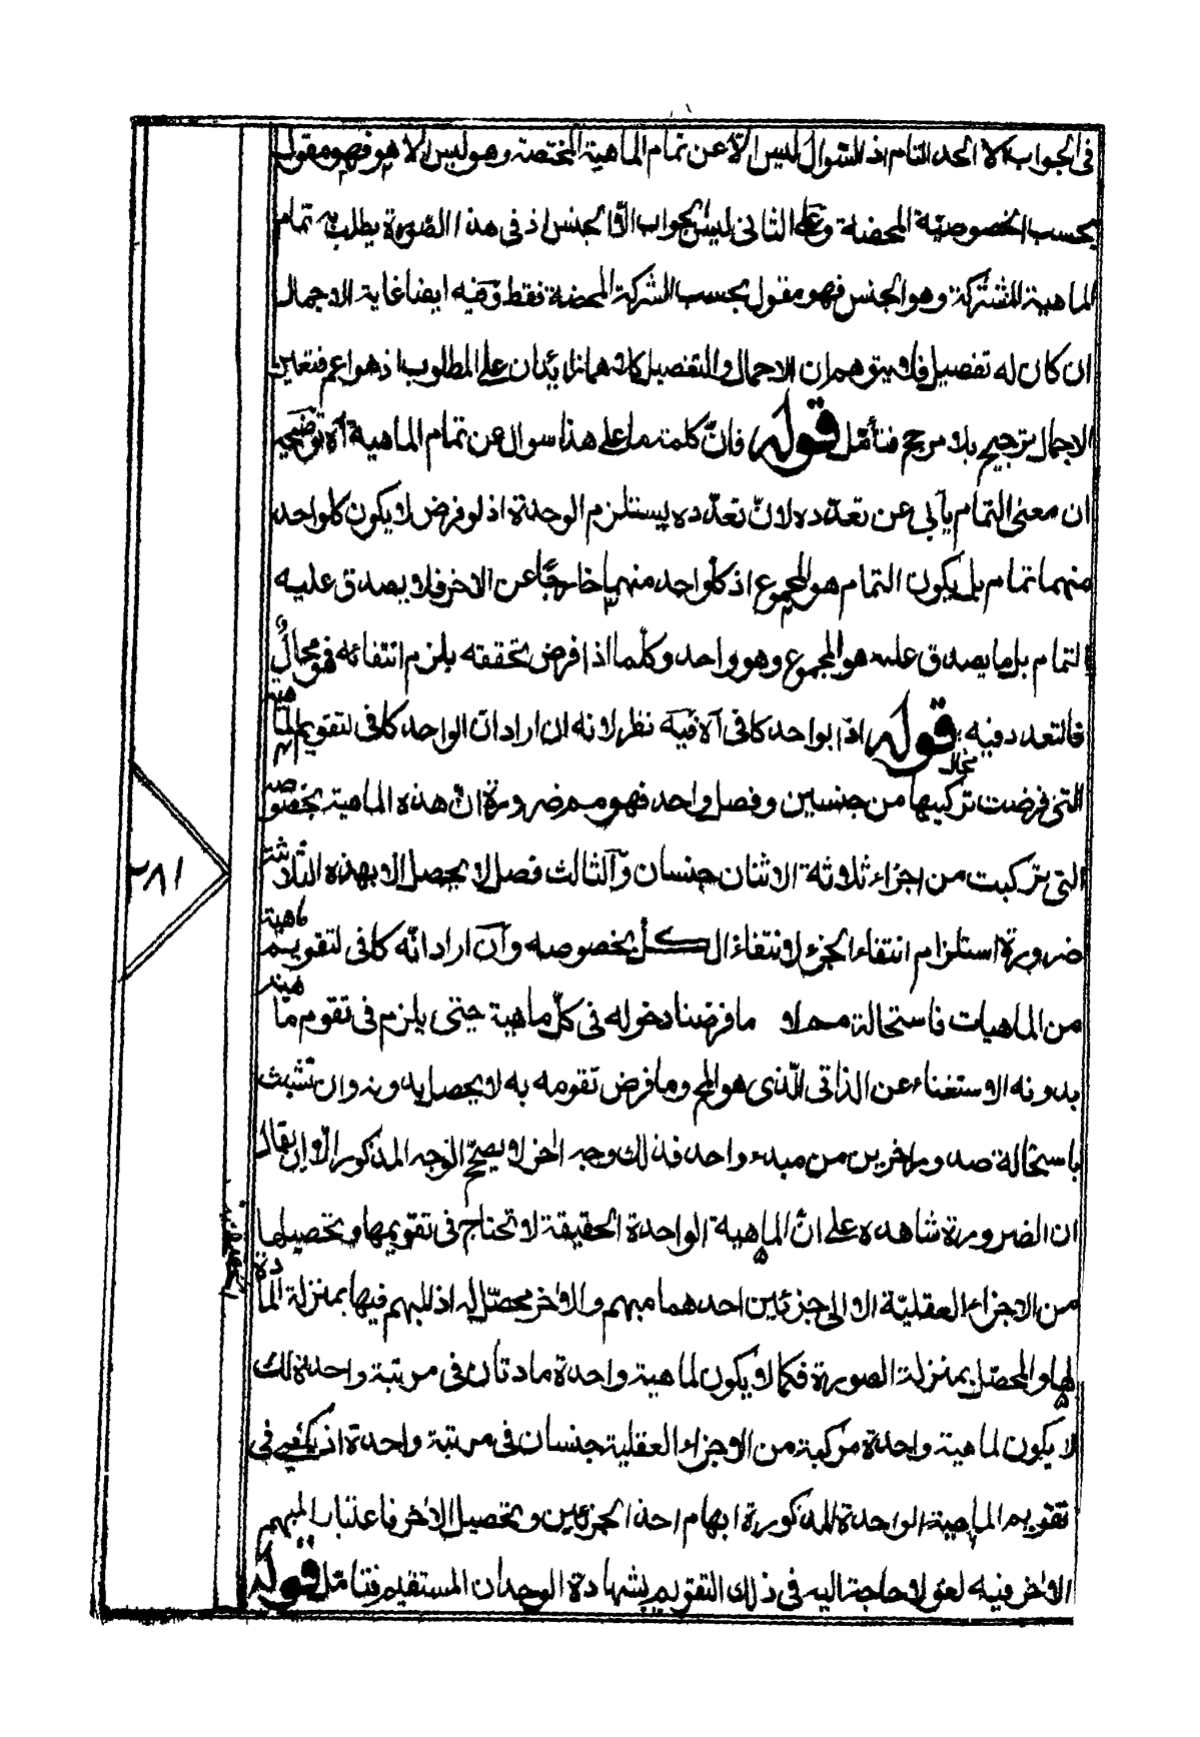 فى الجواب الا الحد التام اذ السّوال ليس الّا عن تمام الماهية المختصة وهو ليس الا هو فهو مقول
بحسب الخصوصيّة المحضة وعلى الثانى ليس الجواب الّا الجنس اذ فى هذا الصّورة يطلب تمام
الماهية المشتركة وهو الجنس فهو مقول بحسب الشركة المحضة فقط وفيه ايضا غاية الاجمال
ان كان له تفصيل فلا يتوهم ان الاجمال والتفصيل كلاهما زائدان على المطلوب اذ هو اعم فتعين
الاجمال ترجيح بلا مرجح فتأمّل قوله فانّ كلمة ما على هذا سوال عن تمام الماهية آه توضيحه
ان معنى التمام يأبى عن تعدّده لانّ تعدّده يستلزم الوحدة اذ لو فرض لا يكون كلواحد
منهما تمام بل يكون التمام هو المجموع اذ كلواحد منهما خارجًا عن الاخر فلا يصدق عليه
التمام بل ما يصدق عليه هو المجموع وهو واحد وكلّما اذا فرض تحققه يلزم انتفائه فهو محالٌ
فالتعدد فيه محال قوله اذا بواحد كافى آه فيه نظر لانه ان اراد انّ الواحد كافى لتقويم الماهية
التى فرضت تركيبها من جنسين وفصل واحد فهو مم ضرورة انّ هذه الماهية بخصوصه
التى تركبت من اجزاء ثلاثة الاثنان جنسان والثالث فصل لا يحصل الا بهذه الثلاثة
ضرورة استلزام انتفاء الجزء لانتفاء الكل بخصوصه وان اراد انّه كافى لتقويم ماهية
من الماهيات فاستحالة مم لا ما فرضنا دخوله فى كلّ ماهية حتى يلزم فى تقوم ماهية
بدونه الاستغناء عن الذاتى الّذى هو المح وما فرض تقومه به لا يحصل بدونه وان تشبث
باستحالة صدور اخرين من مبدء واحد فذلك وجه اخر لا يصحّ الوجه المذكور الّا ان يقال
ان الضرورة شاهده على انّ الماهية الواحدة الحقيقة لا تحتاج فى تقويمها وتحصيلها
من الاجزاء العقليّة الا الى جزئين احدهما مبهم والاخر محصّل له اذ المبهم فيها بمنزلة المادة
لها والمحصّل بمنزلة الصورة فكما لا يكون لماهية واحدة مادتان فى مرتبة واحدة لك
لا يكون لماهية واحدة مركبة من الاجزاء العقلية جنسان فى مرتبة واحدة اذ يكفى فى
تقويم الماهية الواحدة المذكورة ابهام احد الجزئين وتحصيل الاخر فاعتبار المبهم
الاخر فيه لغو لا حاجة اليه فى ذلك التقويم بشهادة الوجدان المستقيم فتامّل قوله
٢٨١